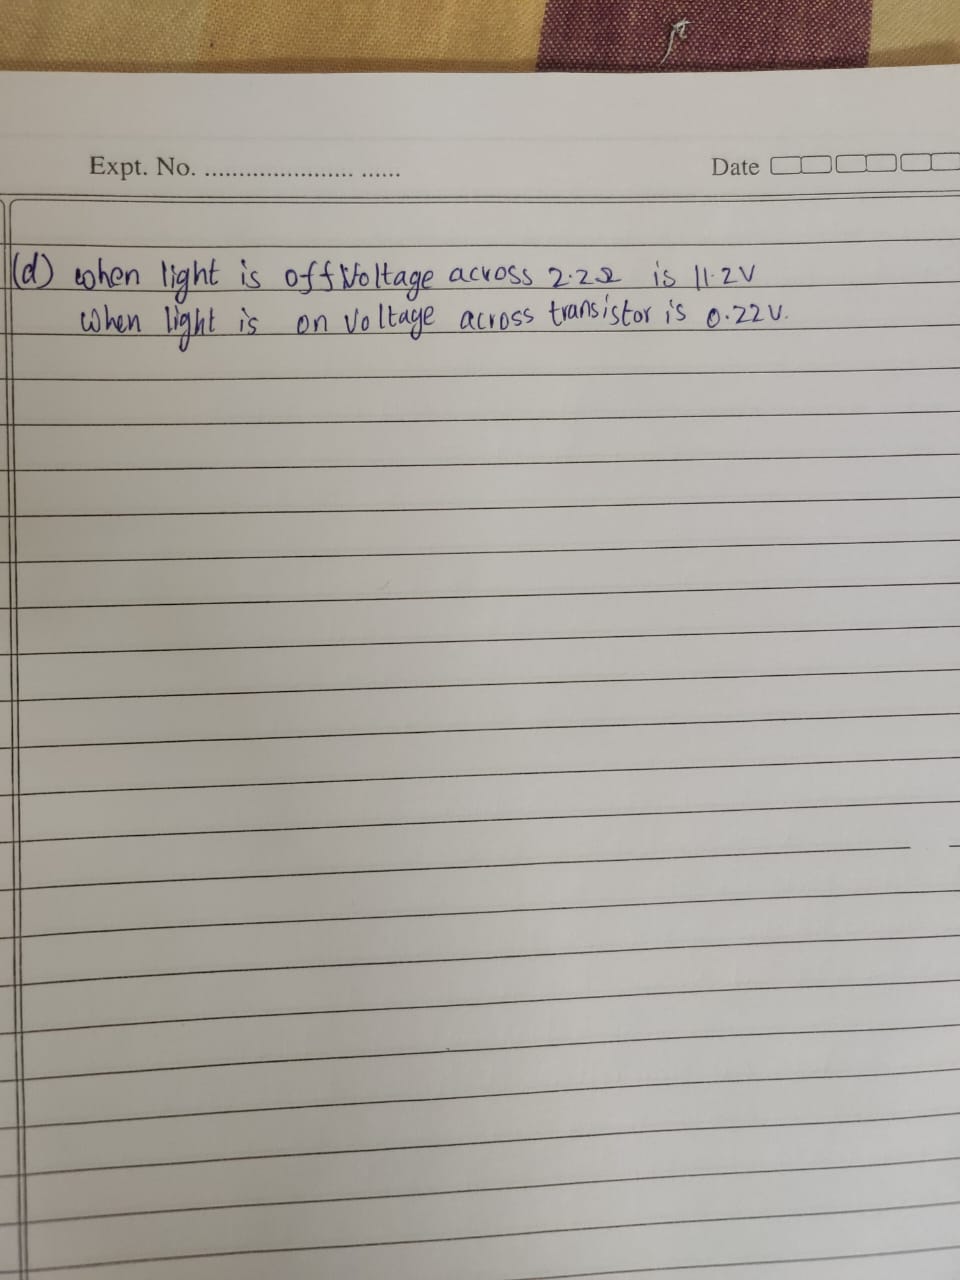 Expt. No. ........................... Date
(d) when light is off Voltage across 2.2Ω is 11.2V
When light is on Voltage across transistor is 0.22V.